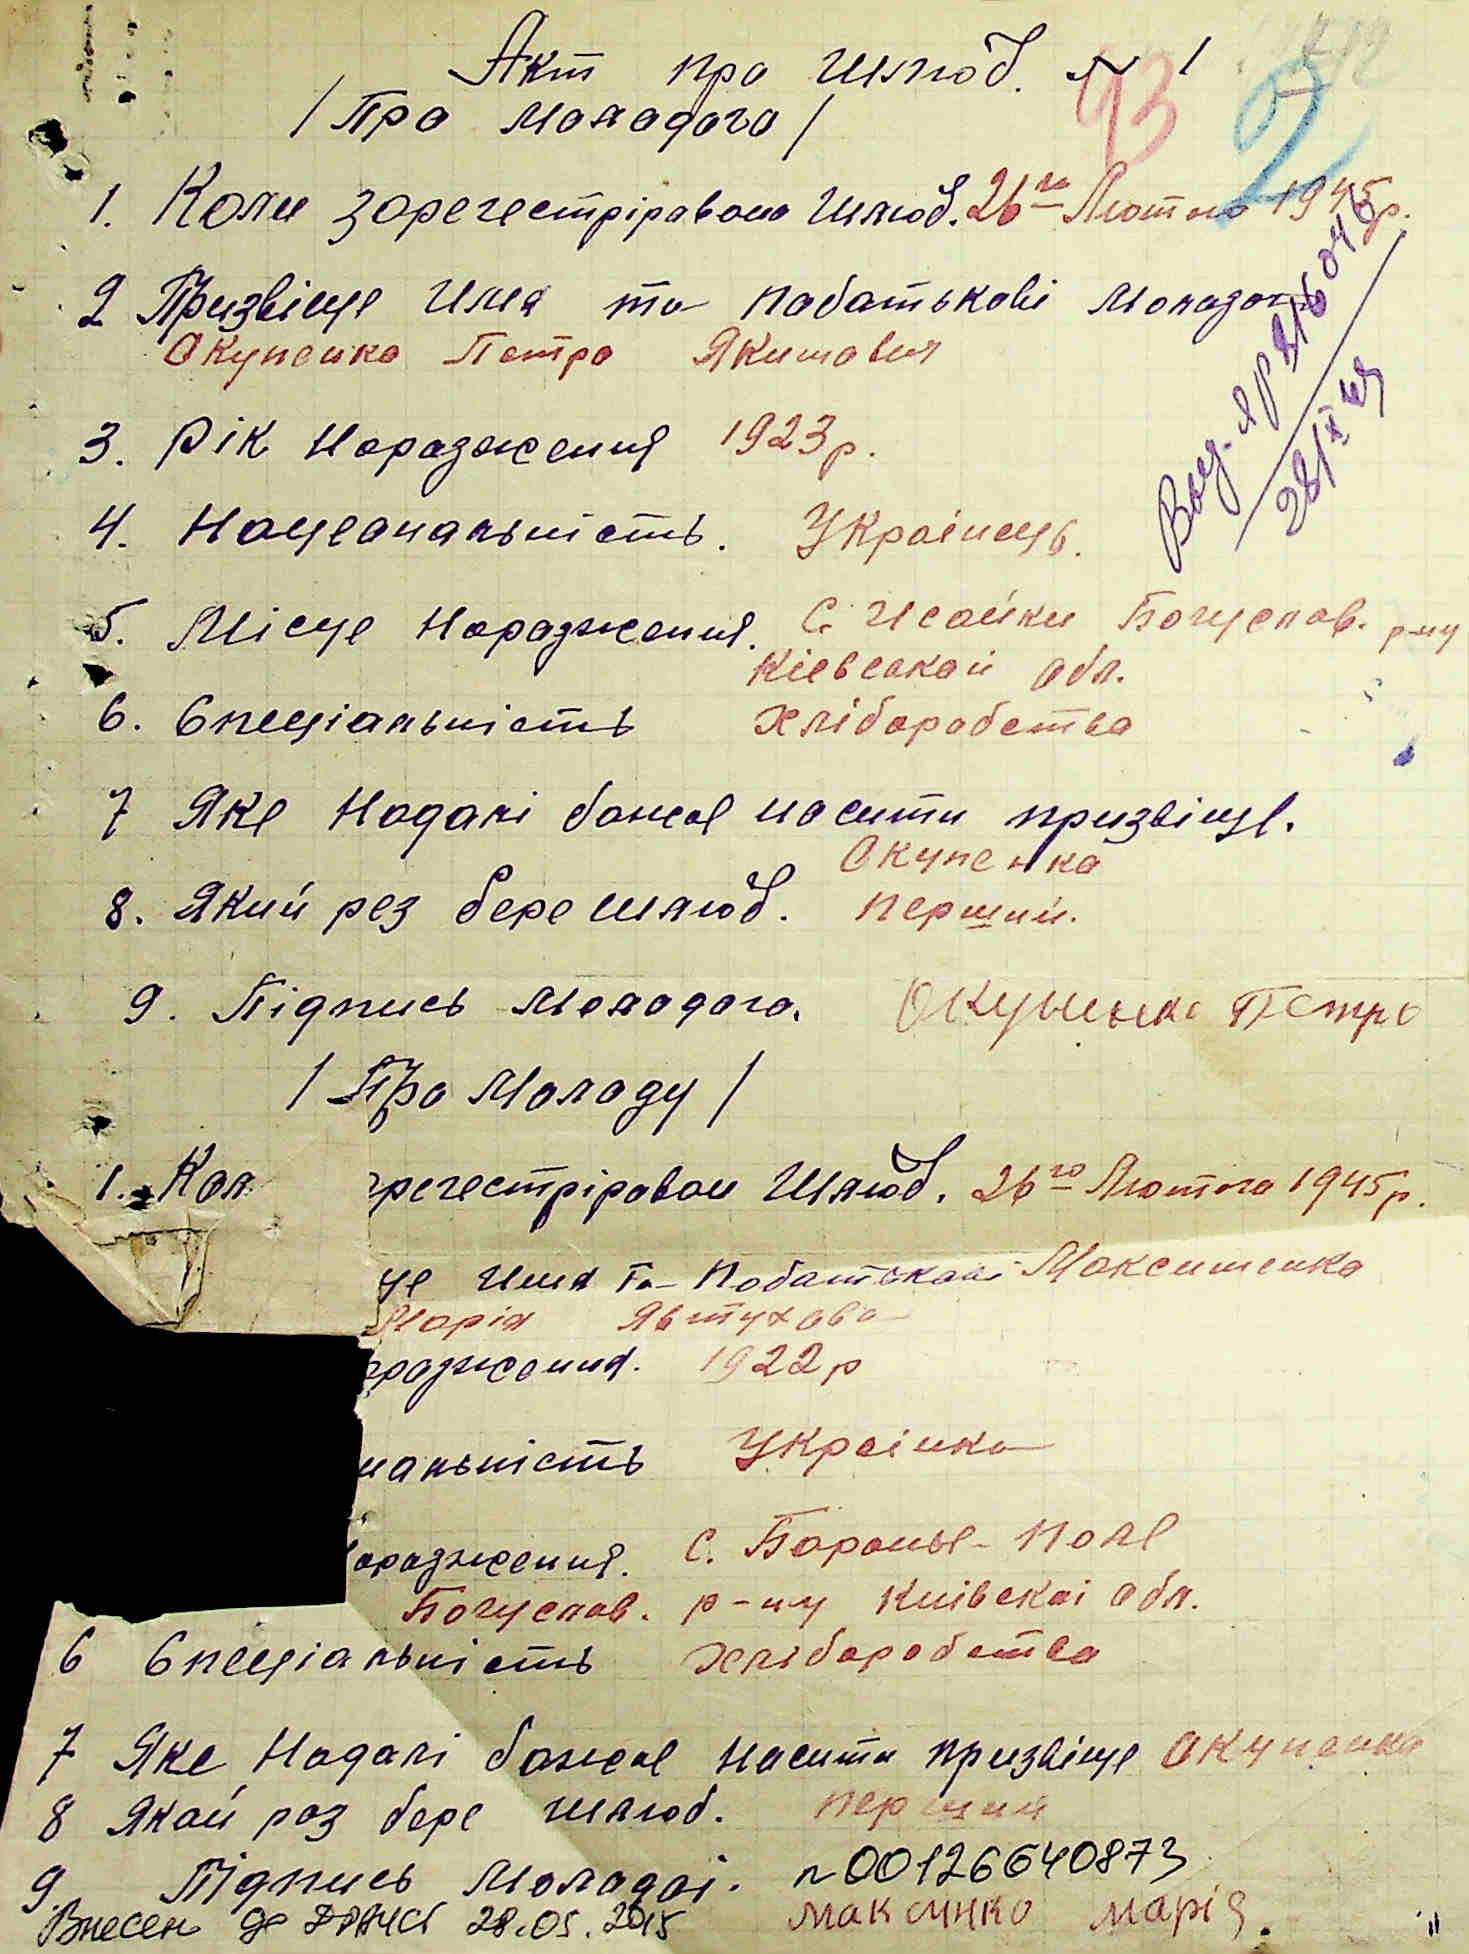 Акт про Шлюб. № 1
93 2
/Про молодого/
1. Коли зарегестріравано Шлюб. 26го Лютого 1945р.
2 Призвіще Имя та побатькові молодого
Окупенко Петро Якимович
3. Рік Народження 1923р.
4. Нацеанальність. Украінець.
5. Місце Народження. С. Исайки Богуслав. р-ну
Кіевської обл.
6. Спеціальність хліборобство
7 Яке Надалі бажає насити призвіще.
Окупенко
8. Який рез бере шлюб. перший.
Выд. яр 816046
28/X 49
9. Підпись молодого. Окупенко Петро
/Про Молоду/
1. Кол регестріраван Шлюб. 26го Лютого 1945р.
це Имя Та Побатькові Максименко
Марія Явтухова
ородження. 1922р
нальність Украінка
ародження. С. Баранье-Поле
Богуслав. р-ну Киівскоі обл.
6 Спеціальність хліборобство
7 Яке Надалі бажає насити призвіще Окупенко
8 Який раз бере шлюб. перший
9. Підпись Молодоі. n00126640873
Внесен до ДРАЦС 28.05.2015 Максинко Марія.